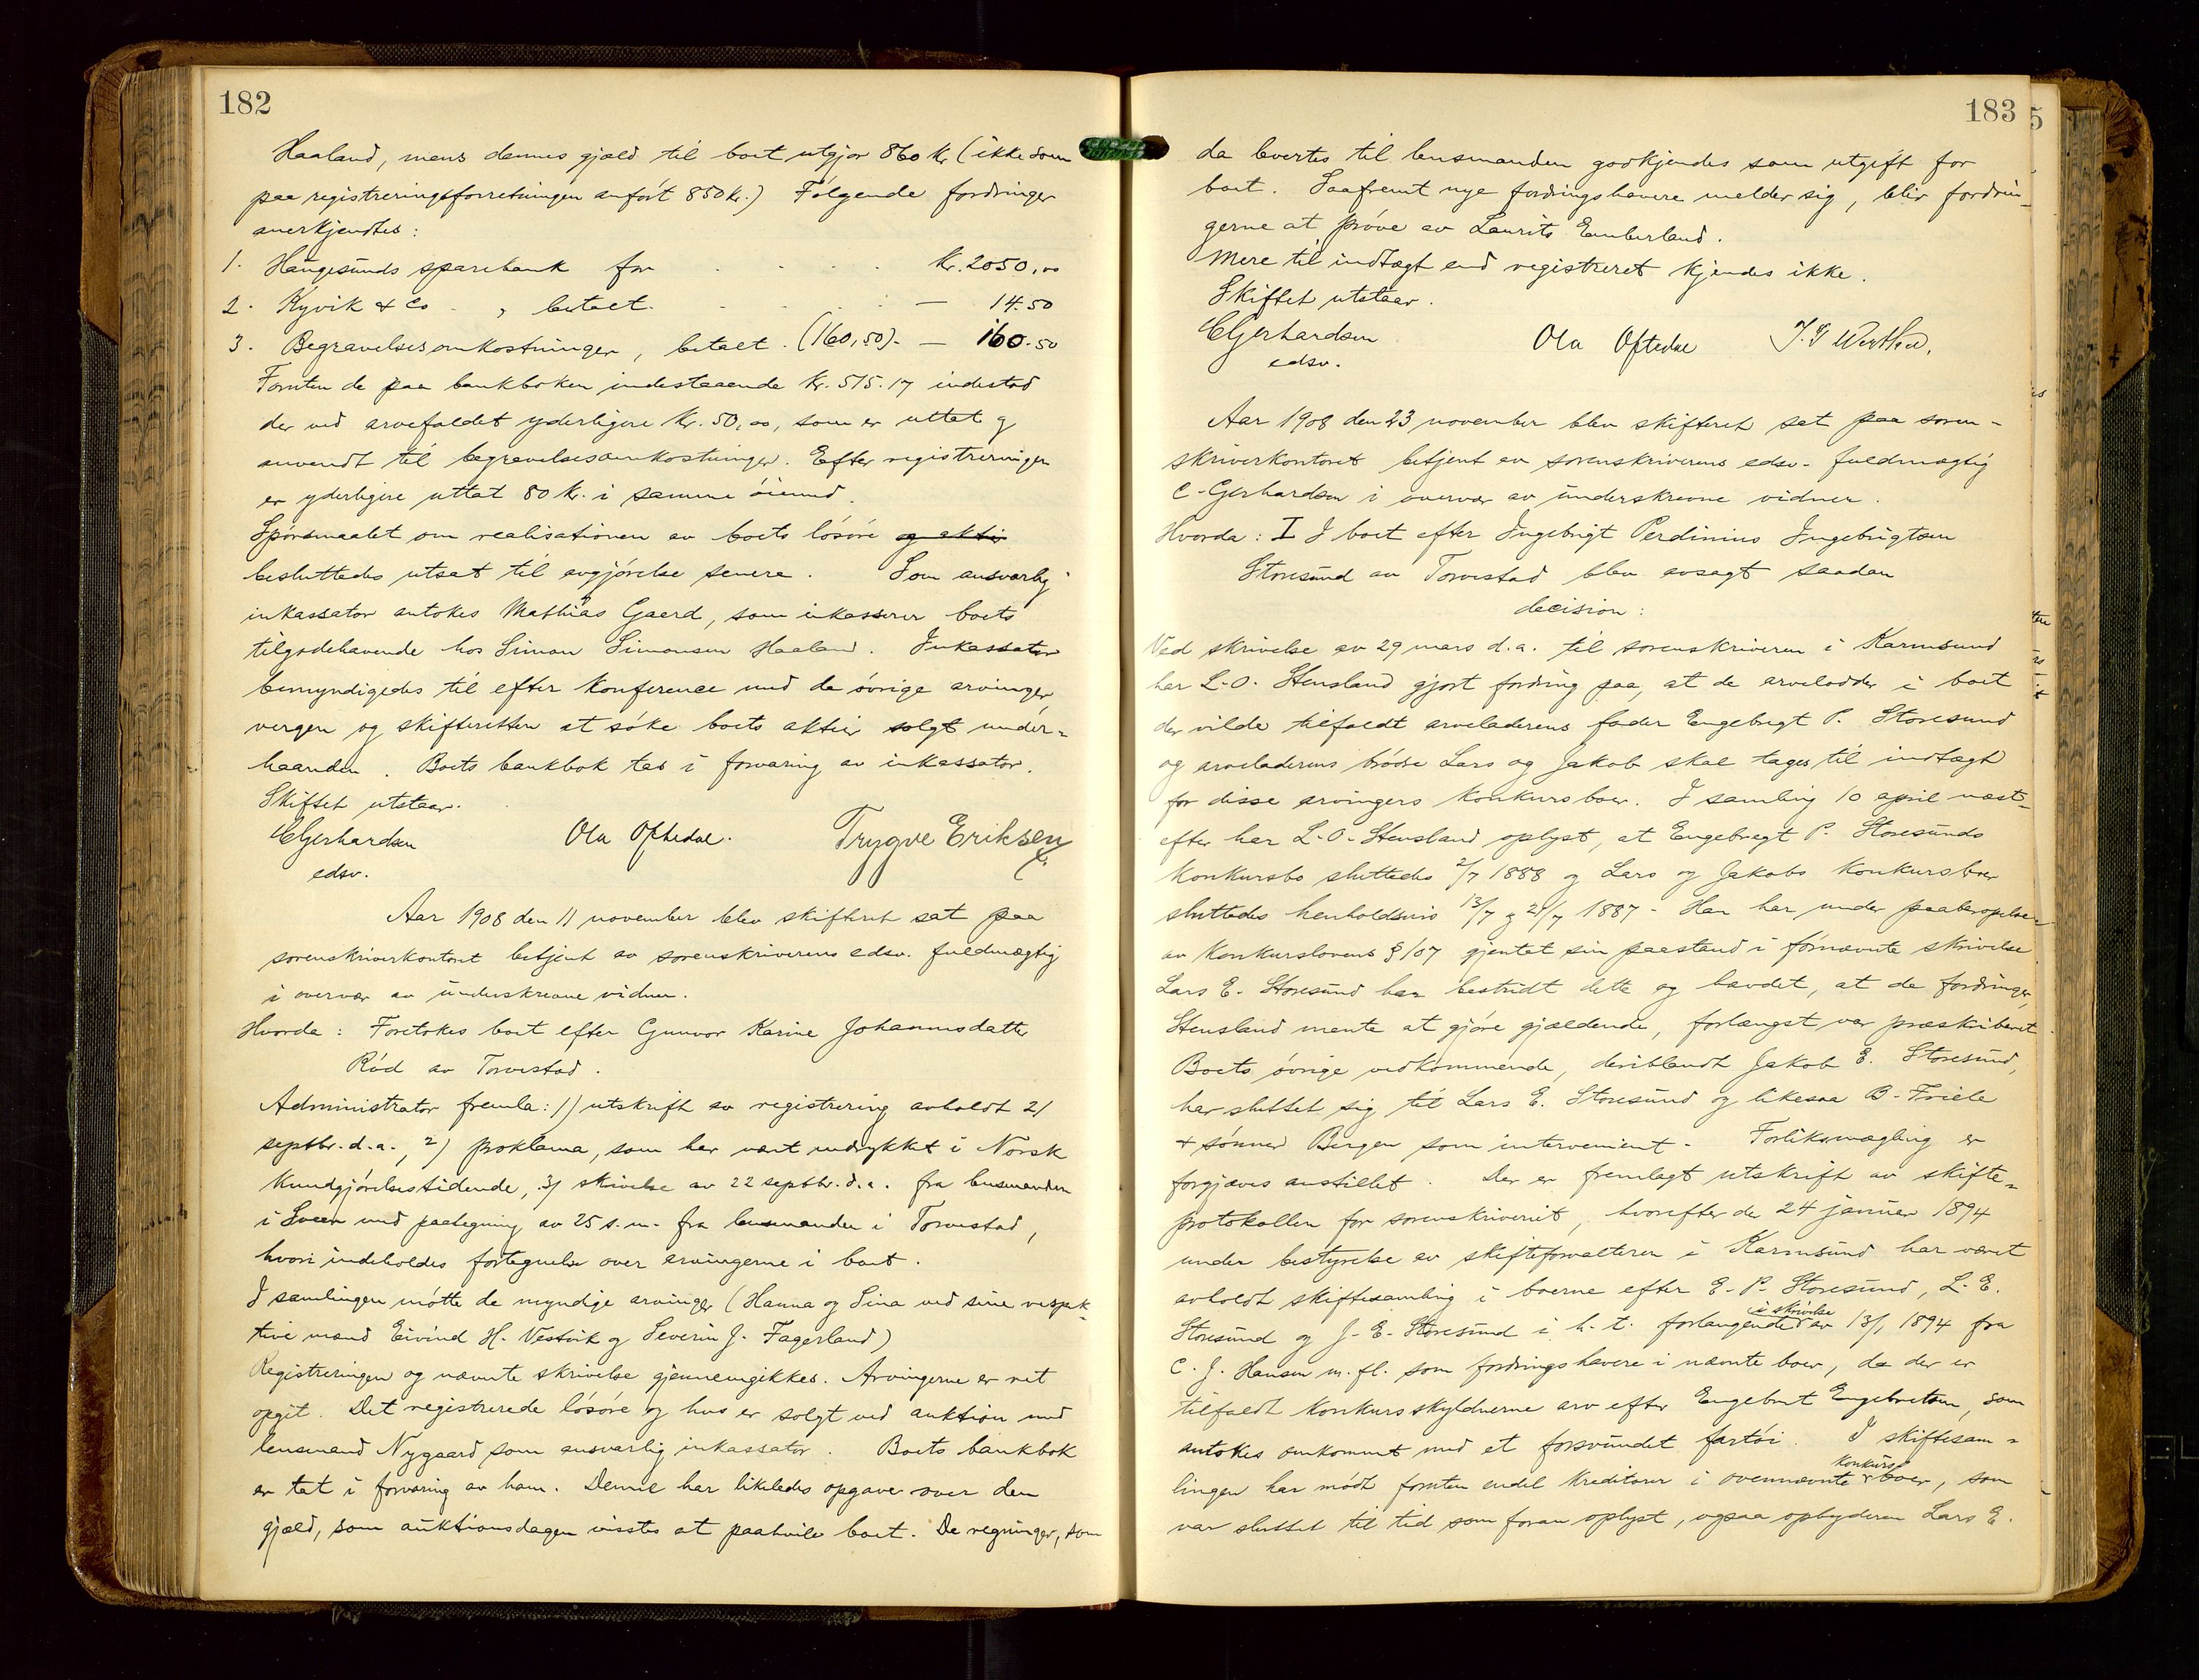 182
Haaland, mens dennes gjæld til boet utgjør 860 kr (ikke som
paa registreringsforretningen anført 850 kr.) Følgende fordringer
anerkjendtes:
1. Haugesunds sparebank for . . . . kr. 2050,00
2. Kyvik & Co. , betalt. . . . . — 14.50
3. Begravelsesomkostninger, betalt. (160,50). — 160.50
Foruten de paa bankboken indestaaende kr. 515.17 indestod
der ved arvefaldet yderligere kr. 50,00, som er uttat og
anvendt til begravelsesomkostninger. Efter registreringen
er yderligere uttat 80 kr. i samme øiemed.
Spørsmaalet om realisationen av boets løsøre og aktier
besluttedes utsat til avgjørelse senere. Som ansvarlig
inkassator antokes Mathias Gaard, som inkasserer boets
tilgodehavende hos Simon Simonsen Haaland. Inkassator
bemyndigedes til efter konference med de øvrige arvinger,
vergen og skifteretten at søke boets aktier solgt under-
haanden. Boets bankbok tas i forvaring av inkassator.
Skiftet utstaar.
CGerhardsen Ola Oftedal. Trygve Eriksen
edsv.
Aar 1908 den 11 november blev skifteret sat paa
sorenskriverkontoret betjent av sorenskriverens edsv. fuldmægtig
i overvær av underskrevne vidner.
Hvorda: Foretokes boet efter Gunvor Karine Johannesdatter
Rød av Torvestad.
Administrator fremla: 1) utskrift av registrering avholdt 21
septbr. d.a., 2) proklama, som har vært indrykket i Norsk
Kundgjørelsestidende, 3) skrivelse av 22 septbr. d.a. fra lensmanden
i Sveen med paategning av 25 s.m. fra lensmanden i Torvestad,
hvori indeholdes fortegnelse over arvingerne i boet.
I samlingen møtte de myndige arvinger (Hanna og Sina ved sine respek-
tive mænd Eivind H. Vestvik og Severin J. Fagerland)
Registreringen og nævnte skrivelse gjennemgikkes. Arvingerne er ret
opgit. Det registrerede løsøre og hus er solgt ved auktion med
lensmand Nygaard som ansvarlig inkassator. Boets bankbok
er tat i forvaring av ham. Denne har likeledes opgave over den
gjæld, som auktionsdagen visstes at paahvile boet. De regninger, som
183
da levertes til lensmanden godkjendes som utgift for
boet. Saafremt nye fordringshavere melder sig, blir fordrin-
gerne at prøve av Laurits Emberland.
Mere til indtægt end registreret kjendes ikke.
Skiftet utstaar.
CGerhardsen Ola Oftedal
edsv.
Aar 1908 den 23 november blev skifteret sat paa soren-
skriverkontoret betjent av sorenskriverens edsv. fuldmægtig
C. Gerhardsen i overvær av underskrevne vidner.
Hvorda: I I boet efter Ingebrigt Perdinius Ingebrigtsen
Storesund av Torvestad blev avsagt saadan
decision:
Ved skrivelse av 29 mars d.a. til sorenskriveren i Karmsund
har L.O. Stensland gjort fordring paa, at de arvelodder i boet
der vilde tilfaldt arveladerens fader Engebrigt P. Storesund
og arveladerens brødre Lars og Jakob skal tages til indtægt
for disse arvingers konkursboer. I samling 10 april næst-
efter har L.O. Stensland oplyst, at Engebregt P. Storesunds
konkursbo sluttedes 2/7 1888 og Lars og Jakobs konkursboer
sluttedes henholdsvis 13/7 og 21/7 1887. Han har under paaberopelse
av konkurslovens § 107 gjentat sin paastand i førnævnte skrivelse.
Lars E. Storesund har bestridt dette og hævdet, at de fordringer,
Stensland mente at gjøre gjældende, forlængst var præskriberet.
Boets øvrige vedkommende, deriblandt Jakob E. Storesund,
har sluttet sig til Lars E. Storesund og likesaa B. Friele
& sønner Bergen som intervenient. Forliksmægling er
forgjæves anstillet. Der er fremlagt utskrift av skifte-
protokollen for sorenskriveriet, hvorefter der 24 januar 1894
under bestyrelse av skifteforvalteren i Karmsund har været
avholdt skiftesamling i boerne efter E. P. Storesund, L. E.
Storesund og J. E. Storesund i h. t. forlangende i skrivelse av 13/1 1894 fra
C. J. Hansen m.fl. som fordringshavere i nævnte boer, da der er
tilfaldt konkursskyldnerne arv efter Engebret Engebretsen, som
antokes omkommet med et forsvundet fartøi. I skiftesam-
lingen har mødt foruten endel kreditorer i ovennævnte konkursboer, som
var sluttet til tid som foran oplyst, ogsaa opbyderen Lars E.